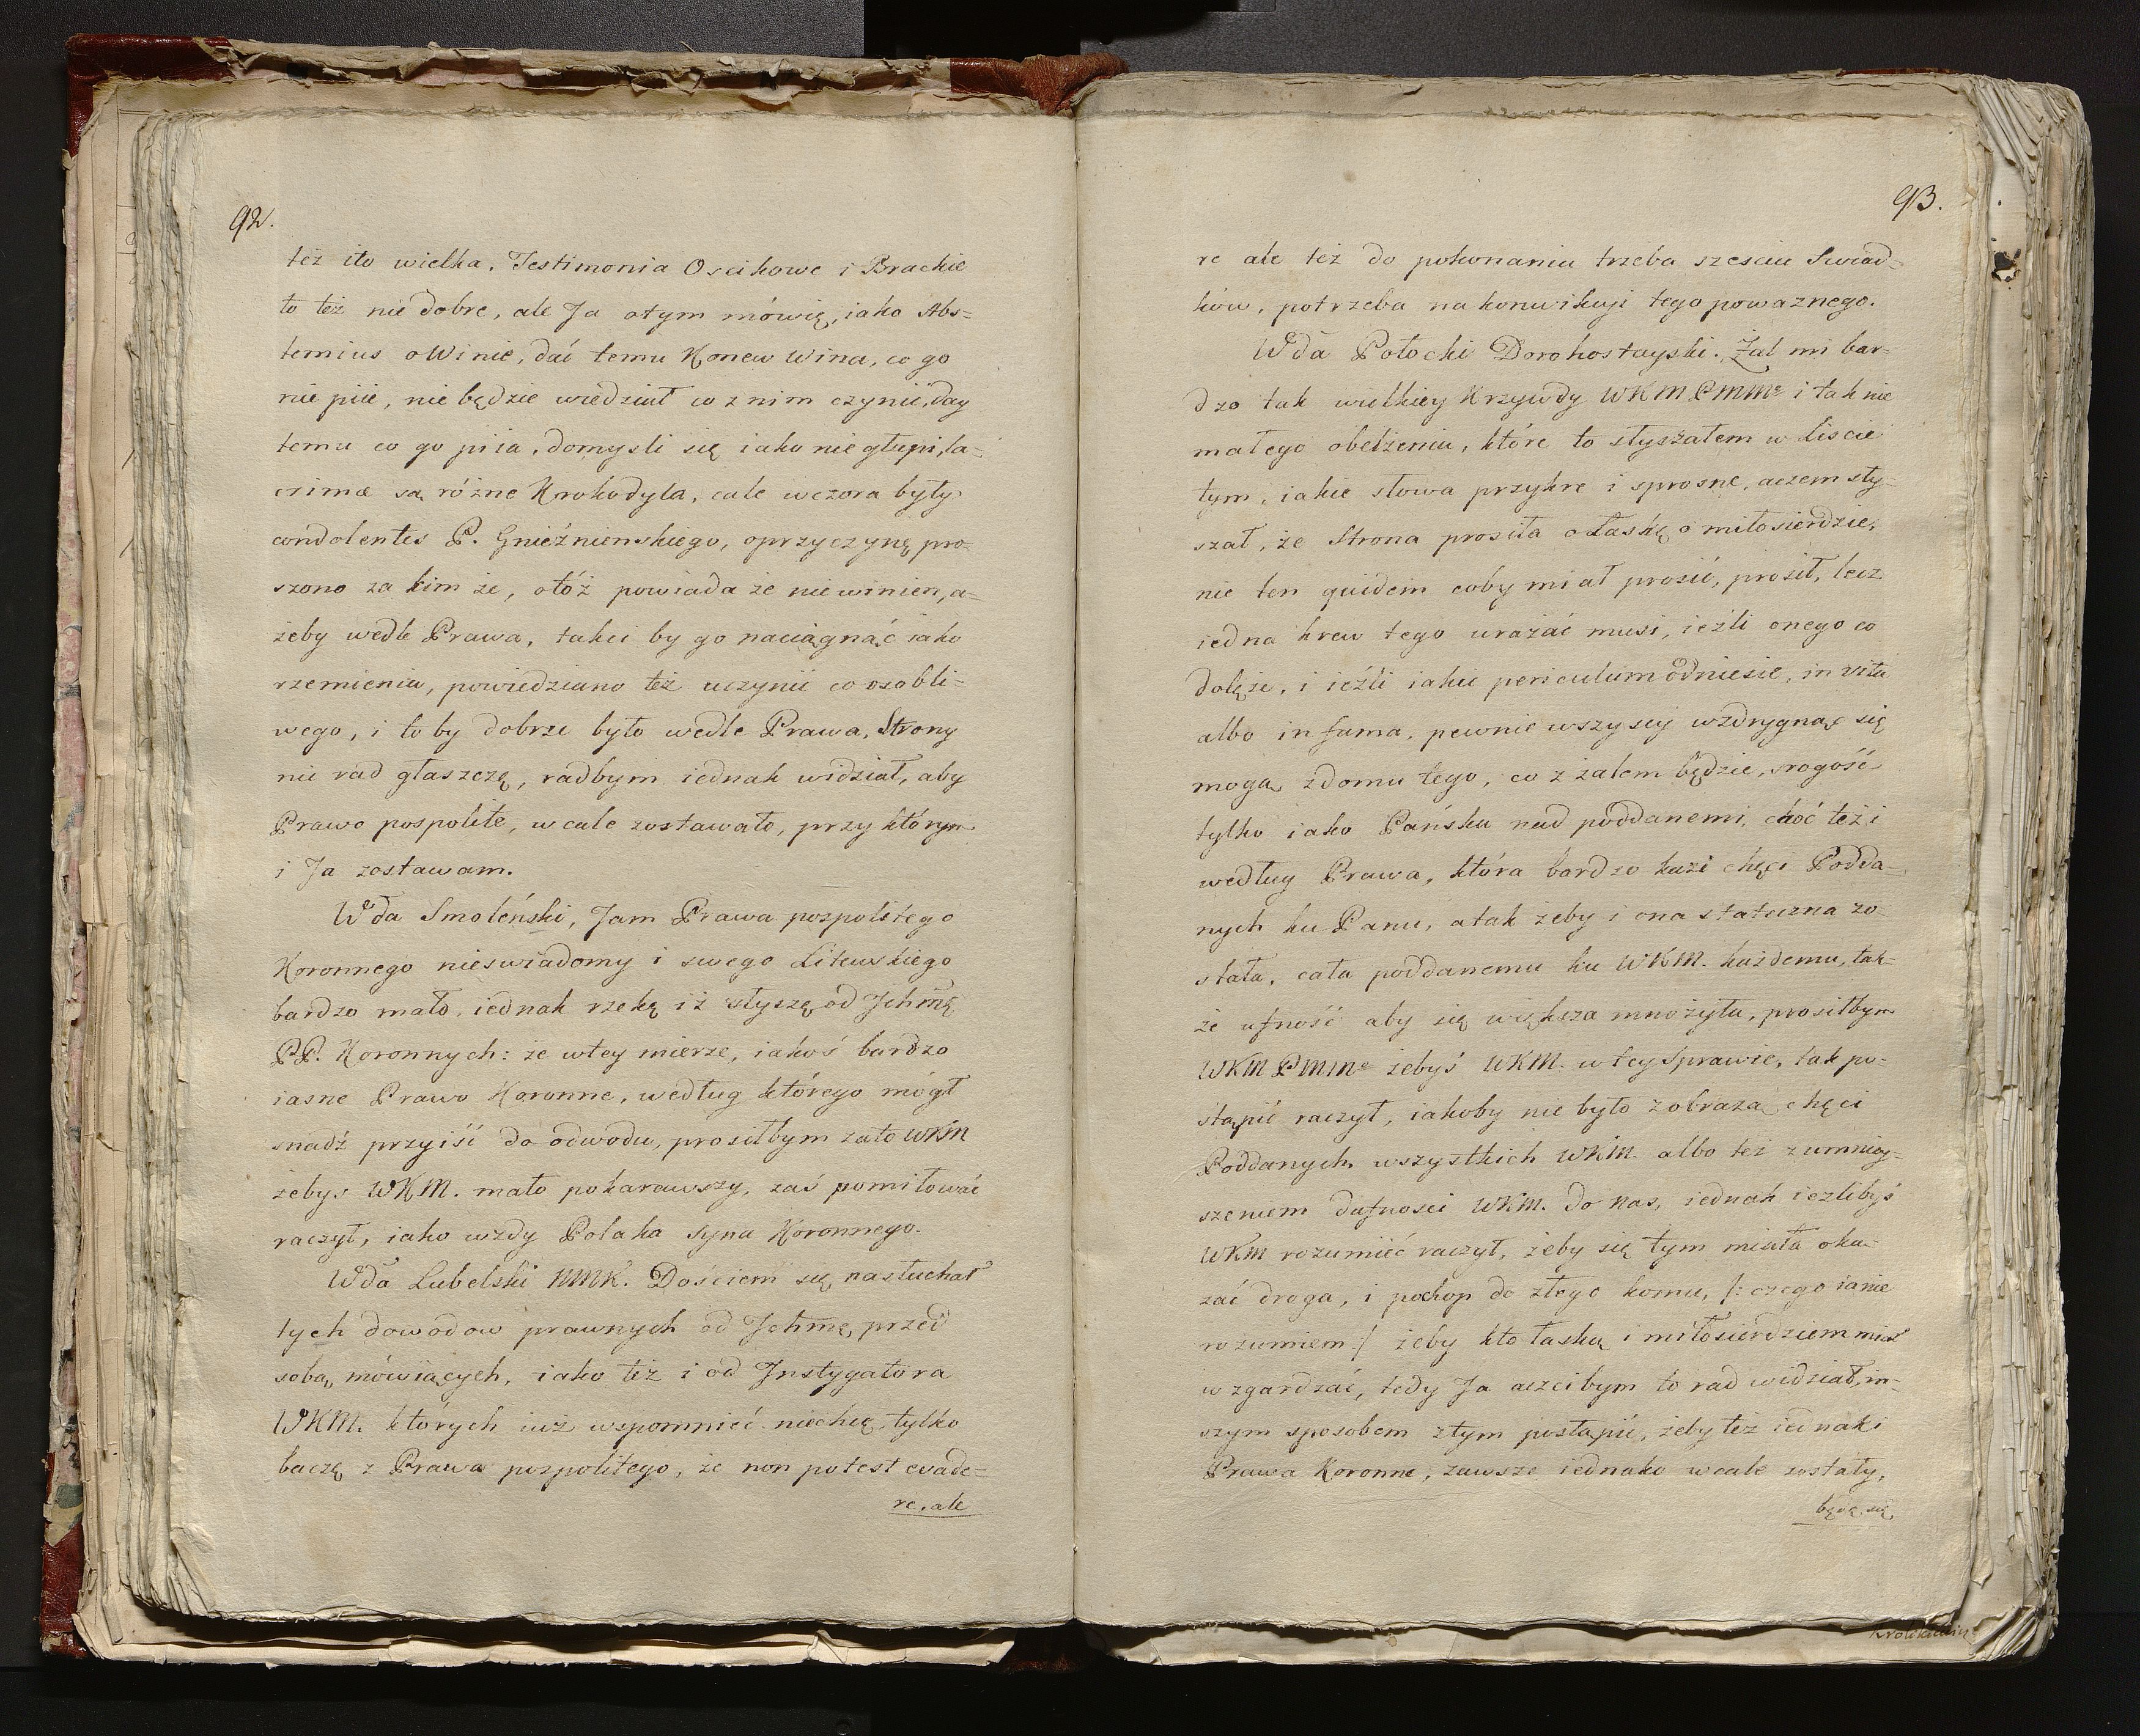 92.
też ito wielka. Testimonia Oscikowe i Brackie
to też nie dobre, ale Ja otym mówię, iako Abs=
temius o Winie, dać temu Konew Wina, co go
nie piie, nie będzie wiedział co z nim czynić, day
temu co go piia, domysli się iako nie głupi, la=
crimæ są różne Krokodyla, cale wczora były
condolentes P. Gnieźnienskiego, oprzyczynę pro=
szono za kim że, otóż powiada że nie winien, a=
żeby wedle Prawa, takci by go naciągnąć iako
rzemienia, powiedziano też uczynić co osobli=
wego, i to by dobrze było wedle Prawa, Strony
nie rad głaszczę, radbym iednak widział, aby
Prawo pospolite, w cale zostawało, przy którym
i Ja zostawam.
Wda Smoleński, Jam Prawa pospolitego
Koronnego nieswiadomy i swego Litewskiego
bardzo mało, iednak rzekę iż słyszę od Ichmę
PP. Koronnych: że wtey mierze, iakoś bardzo
iasne Prawo Koronne, według którego mógł
snadź przyiść do odwodu, prosiłbym zato WKM
żebys WKM. mało pokarawszy, zaś pomiłować
raczył, iako wzdy Polaka Syna Koronnego.
Wda Lubelski NMK. Dościem się nasłuchał
tych dowodow prawnych od Ichmę, przed
sobą mówiących, iako też i od Instygatora
WKM. których iuż wspomnieć niechcę, tylko
baczę z Prawa pospolitego, że non potest evade=
re, ale
93.
re ale też do pokonania trzeba szesciu Swiad=
ków, potrzeba na konwikcyi tego poważnego.
Wda Połocki Dorohostayski. Żal mi bar=
dzo tak wielkiey Krzywdy WKM PMMe i tak nie
małego obelżenia, które to słyszałem w Liscie
tym, iakie słowa przykre i sprosne, aczem sły=
szał, że Strona prosiła o Łaskę o miłosierdzie,
nie ten quidem coby miał prosić, prosił, lecz
iedna krew tego urażać musi, ieźli onego co
dolęże, i ieźli iakie periculum odniesie, in vita
albo in fama, pewnie wszyscy wzdrygnąc się
mogą zdomu tego, co z żalem będzie, srogość
tylko iako Pańska nad poddanemi, choć też i
według Prawa, która bardzo kazi chęci Podda=
nych ku Panu, atak żeby i ona stateczna zo=
stała, cała poddanemu ku WKM. każdemu, tak=
że ufność aby się większa mnożyła, prosiłbym
WKM PMMe żebyś WKM. w tey Sprawie, tak po=
stąpić raczył, iakoby nie było z obrazą chęci
Poddanych wszystkich WKM. albo też z umniey=
szeniem dufnosci WKM. do nas, iednak iezlibyś
WKM rozumieć raczył, żeby się tym miała oka=
zać droga, i pochop do złego komu, /: czego ia nie
rozumiem :/ żeby kto łaską i miłosierdziem miał
wzgardzać, tedy Ja aczcibym to rad widział, in=
szym sposobem z tym postąpić, żeby też iednak i
Prawa Koronne, zawsze iednako wcale zostały,
będę się